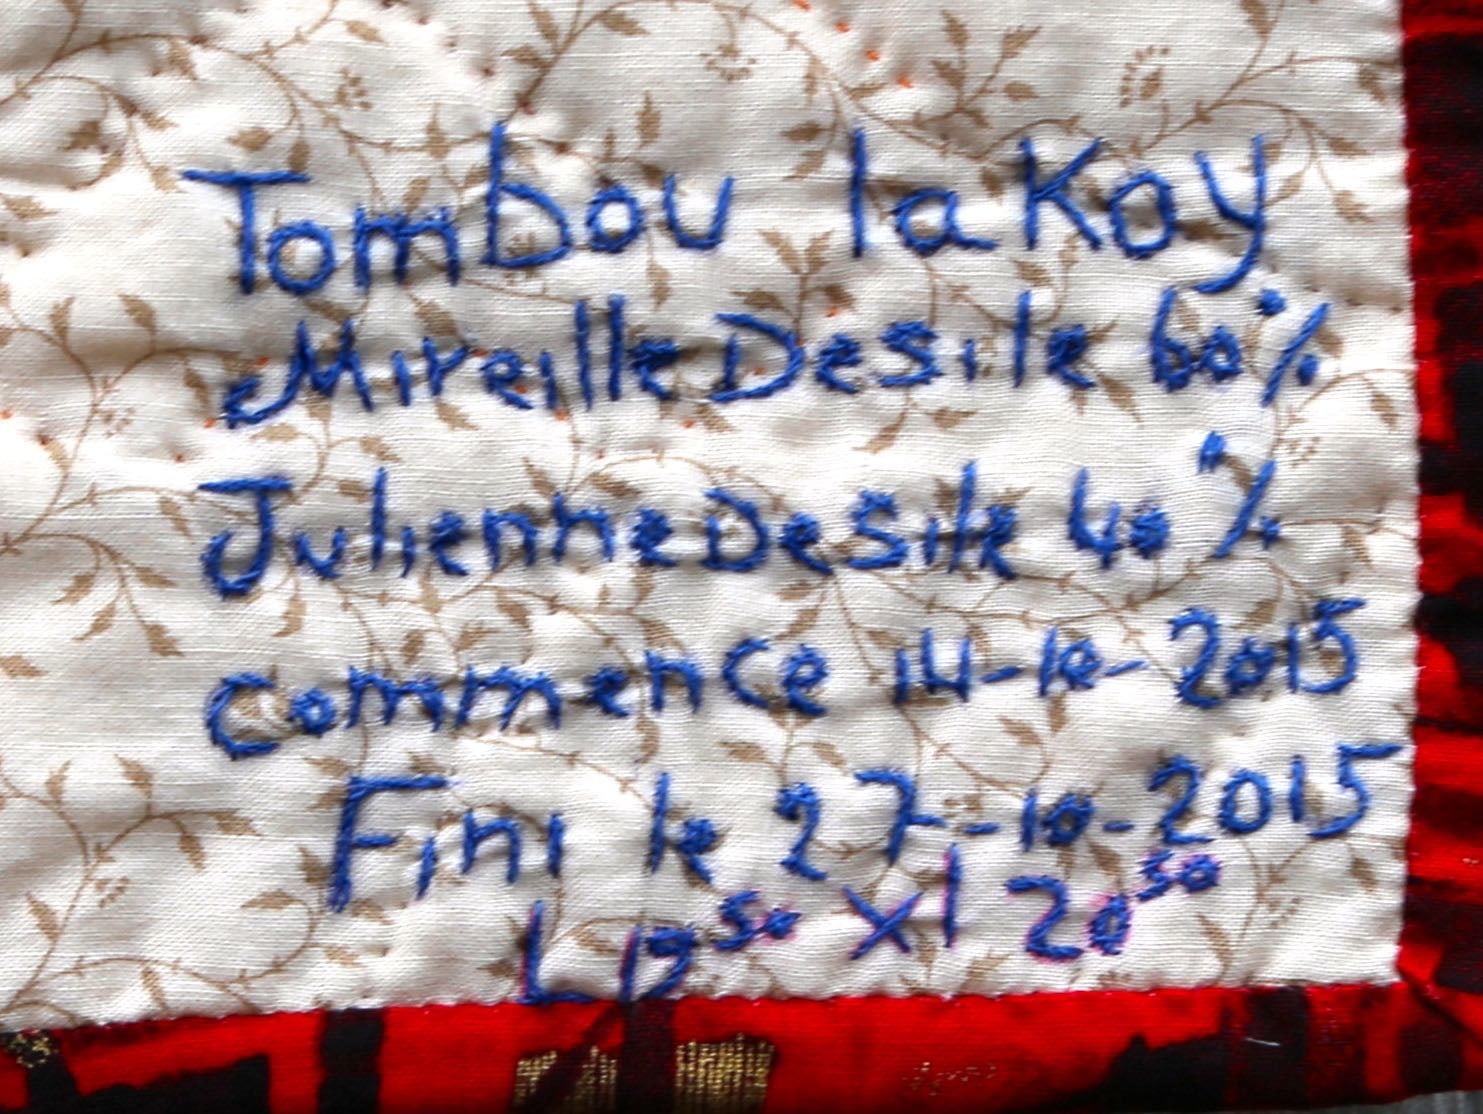 Tombou la Kay
Mireille Desile 60%
Julienne Desile 40%
Commence 14-10-2015
Fini le 27-10-2015
L 19 50 x l 20 50